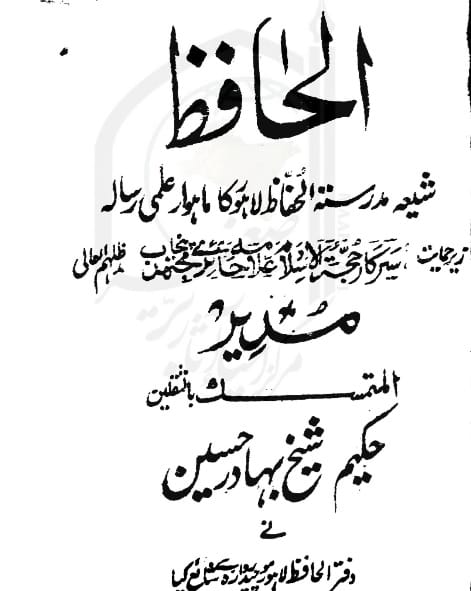 الحافظ
شیعہ مدرستہ الحفّاظ لاہور کا ماہوار علمی رسالہ
زیر حمایت سرکار حجۃ الاسلام علامہ حائری مجتہد پنجاب مدظلہم العالی
مدیر
المتمسک بالثقلین
حکیم شیخ بہادر حسین
نے
دفتر الحافظ لاہور سے شائع کیا